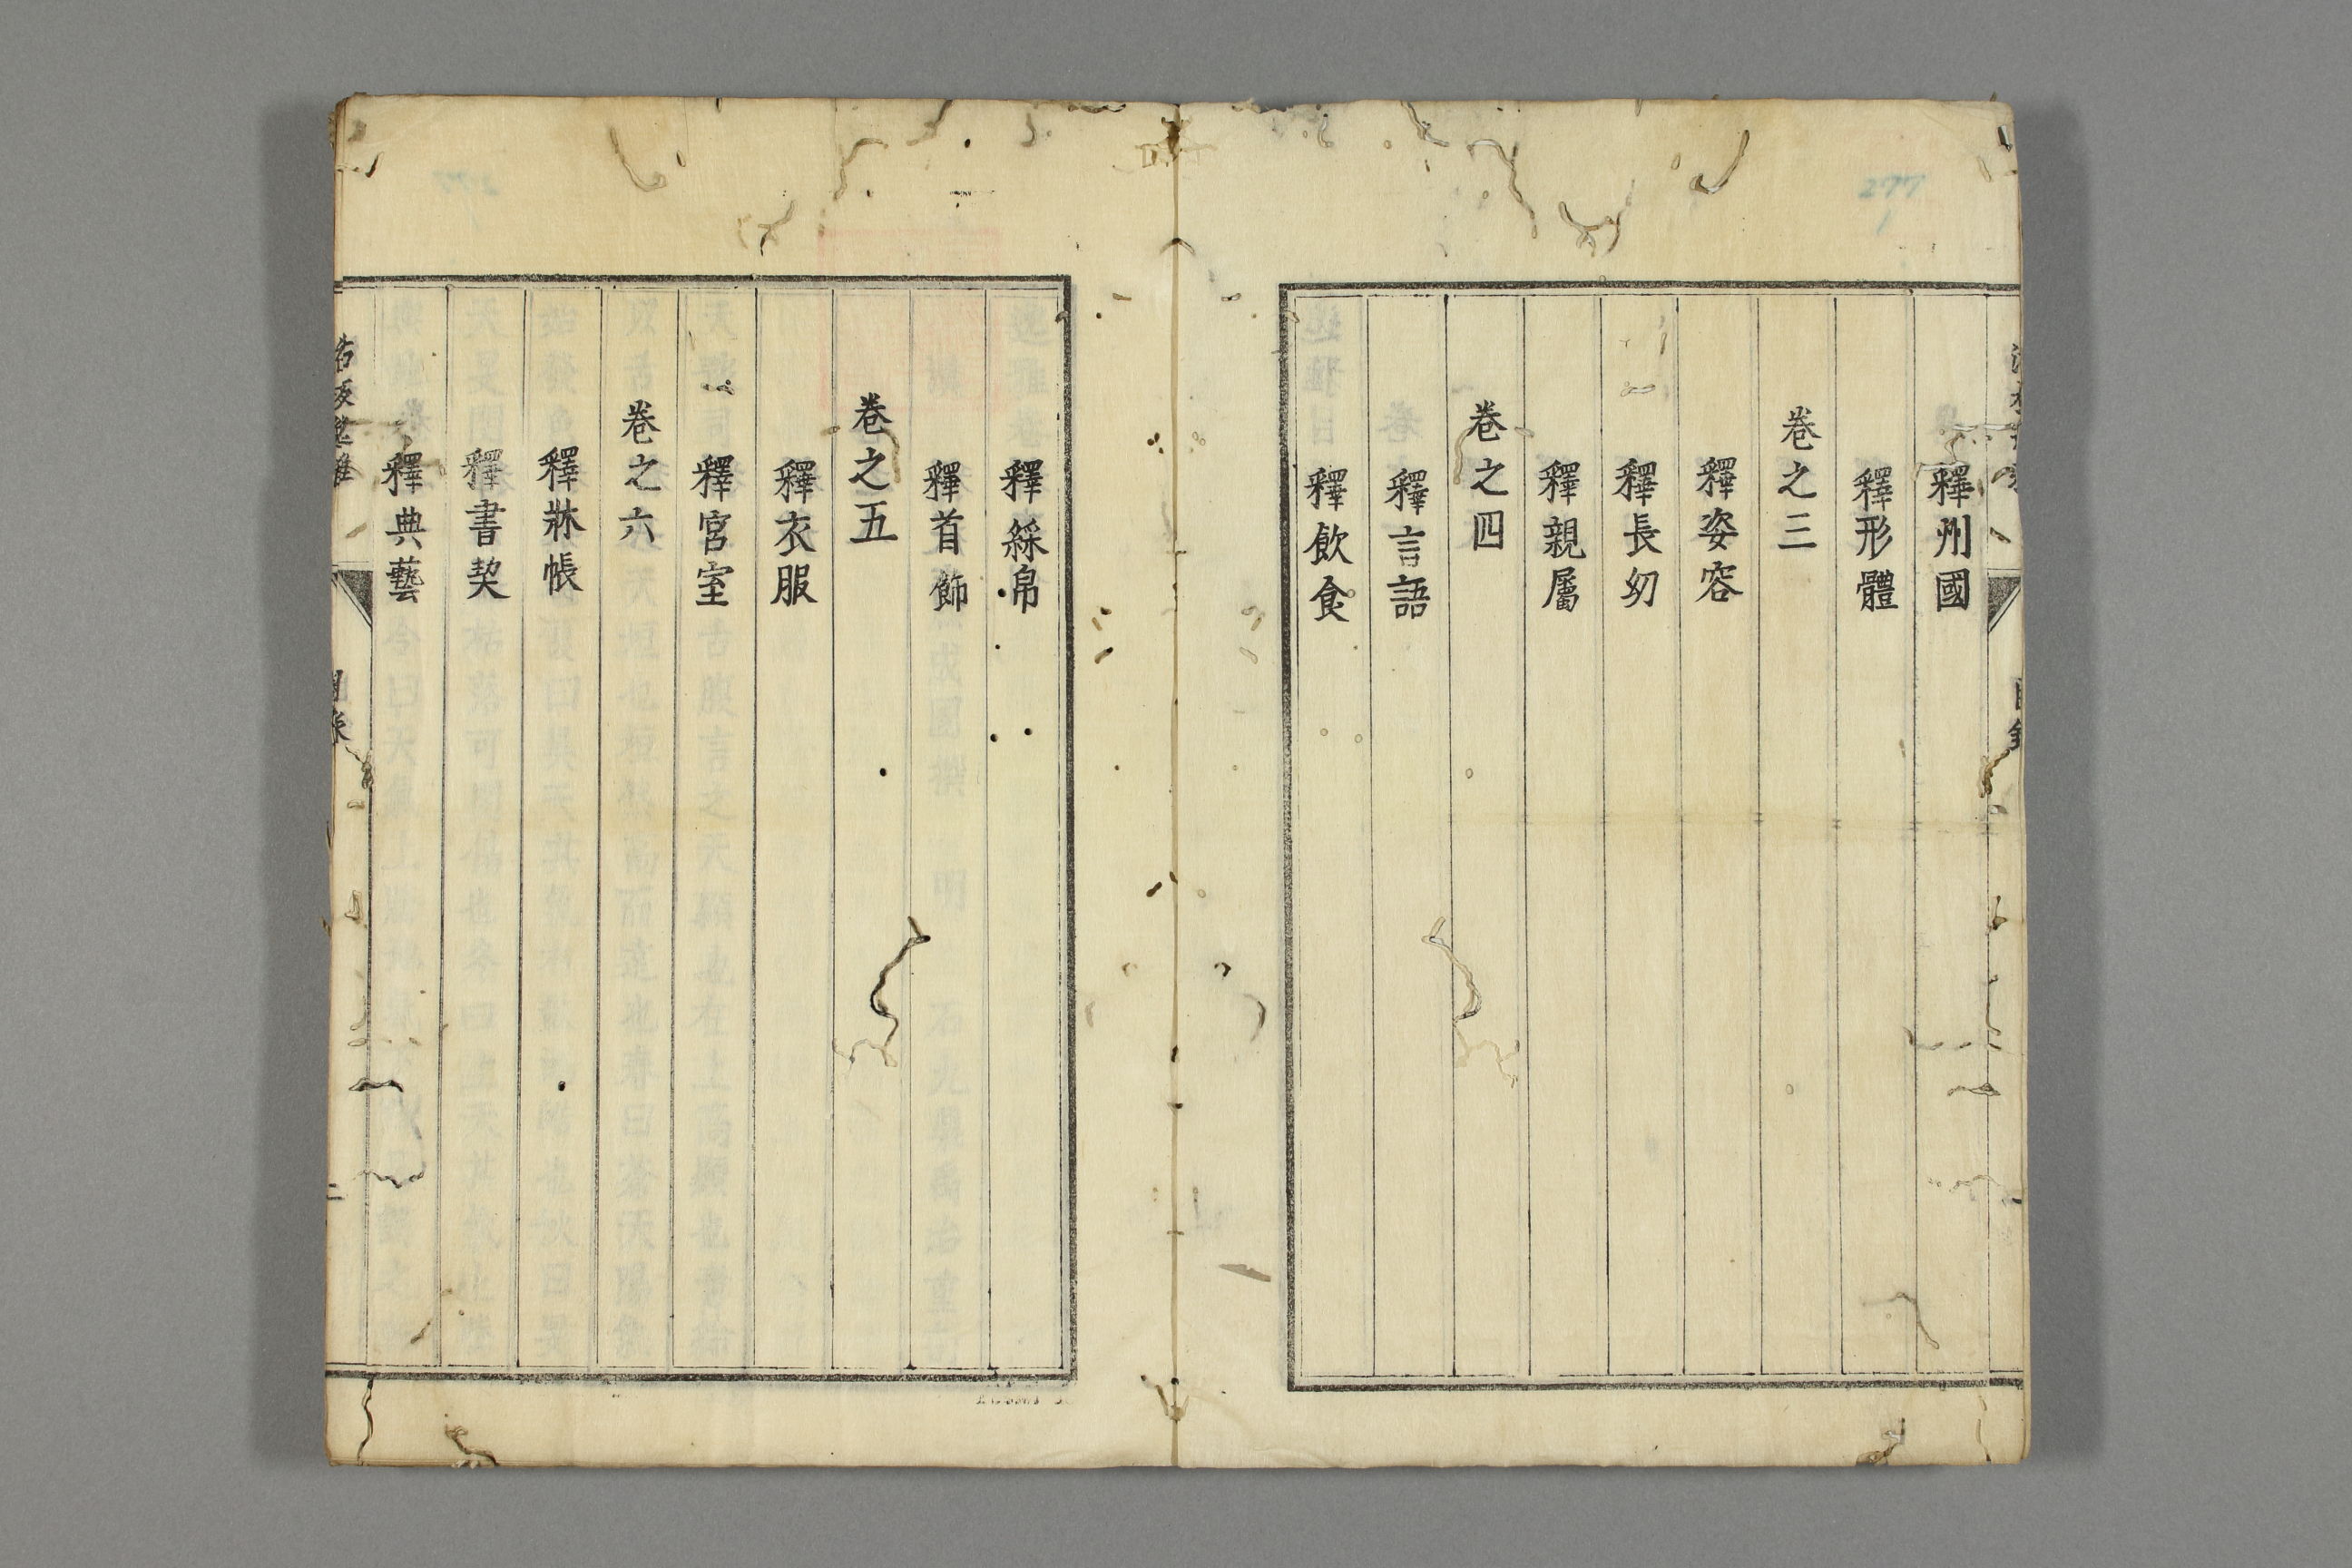 釋州國
釋形體
卷之三
釋姿容
釋長㓜
釋親屬
卷之四
釋言語
釋飲食
釋綵帛
釋首飾
卷之五
釋衣服
釋宮室
卷之六
釋牀帳
釋書契
釋典藝
277
1